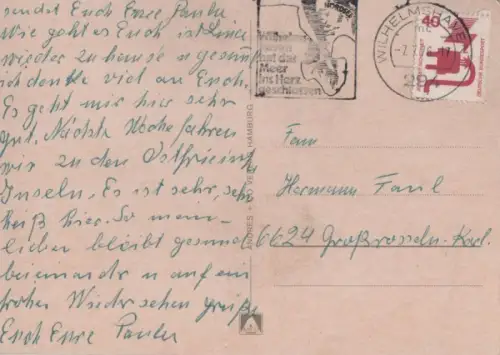 sendet Euch Eure Paula
Wie geht es Euch ist
wieder zuhause u gesund
ich denke viel an Euch.
Es geht mir hier sehr
gut, Nächste Woche fahren
wir zu den Ostfriesisch
Inseln. Es ist sehr, sehr
heiß hier. So mein
lieber bleibt gesund
beieinander u auf ein
frohes Wiedersehen grüßt
Euch Eure Paula
Wilhelms-
haven
hat das
Meer
ins Herz
geschlossen
WILHELMSHAVEN
294
40
DEUTSCHE BUNDESPOST
VERLAG HAMBURG
Fam
Hermann Faul
6624 Großrosseln-Karl.